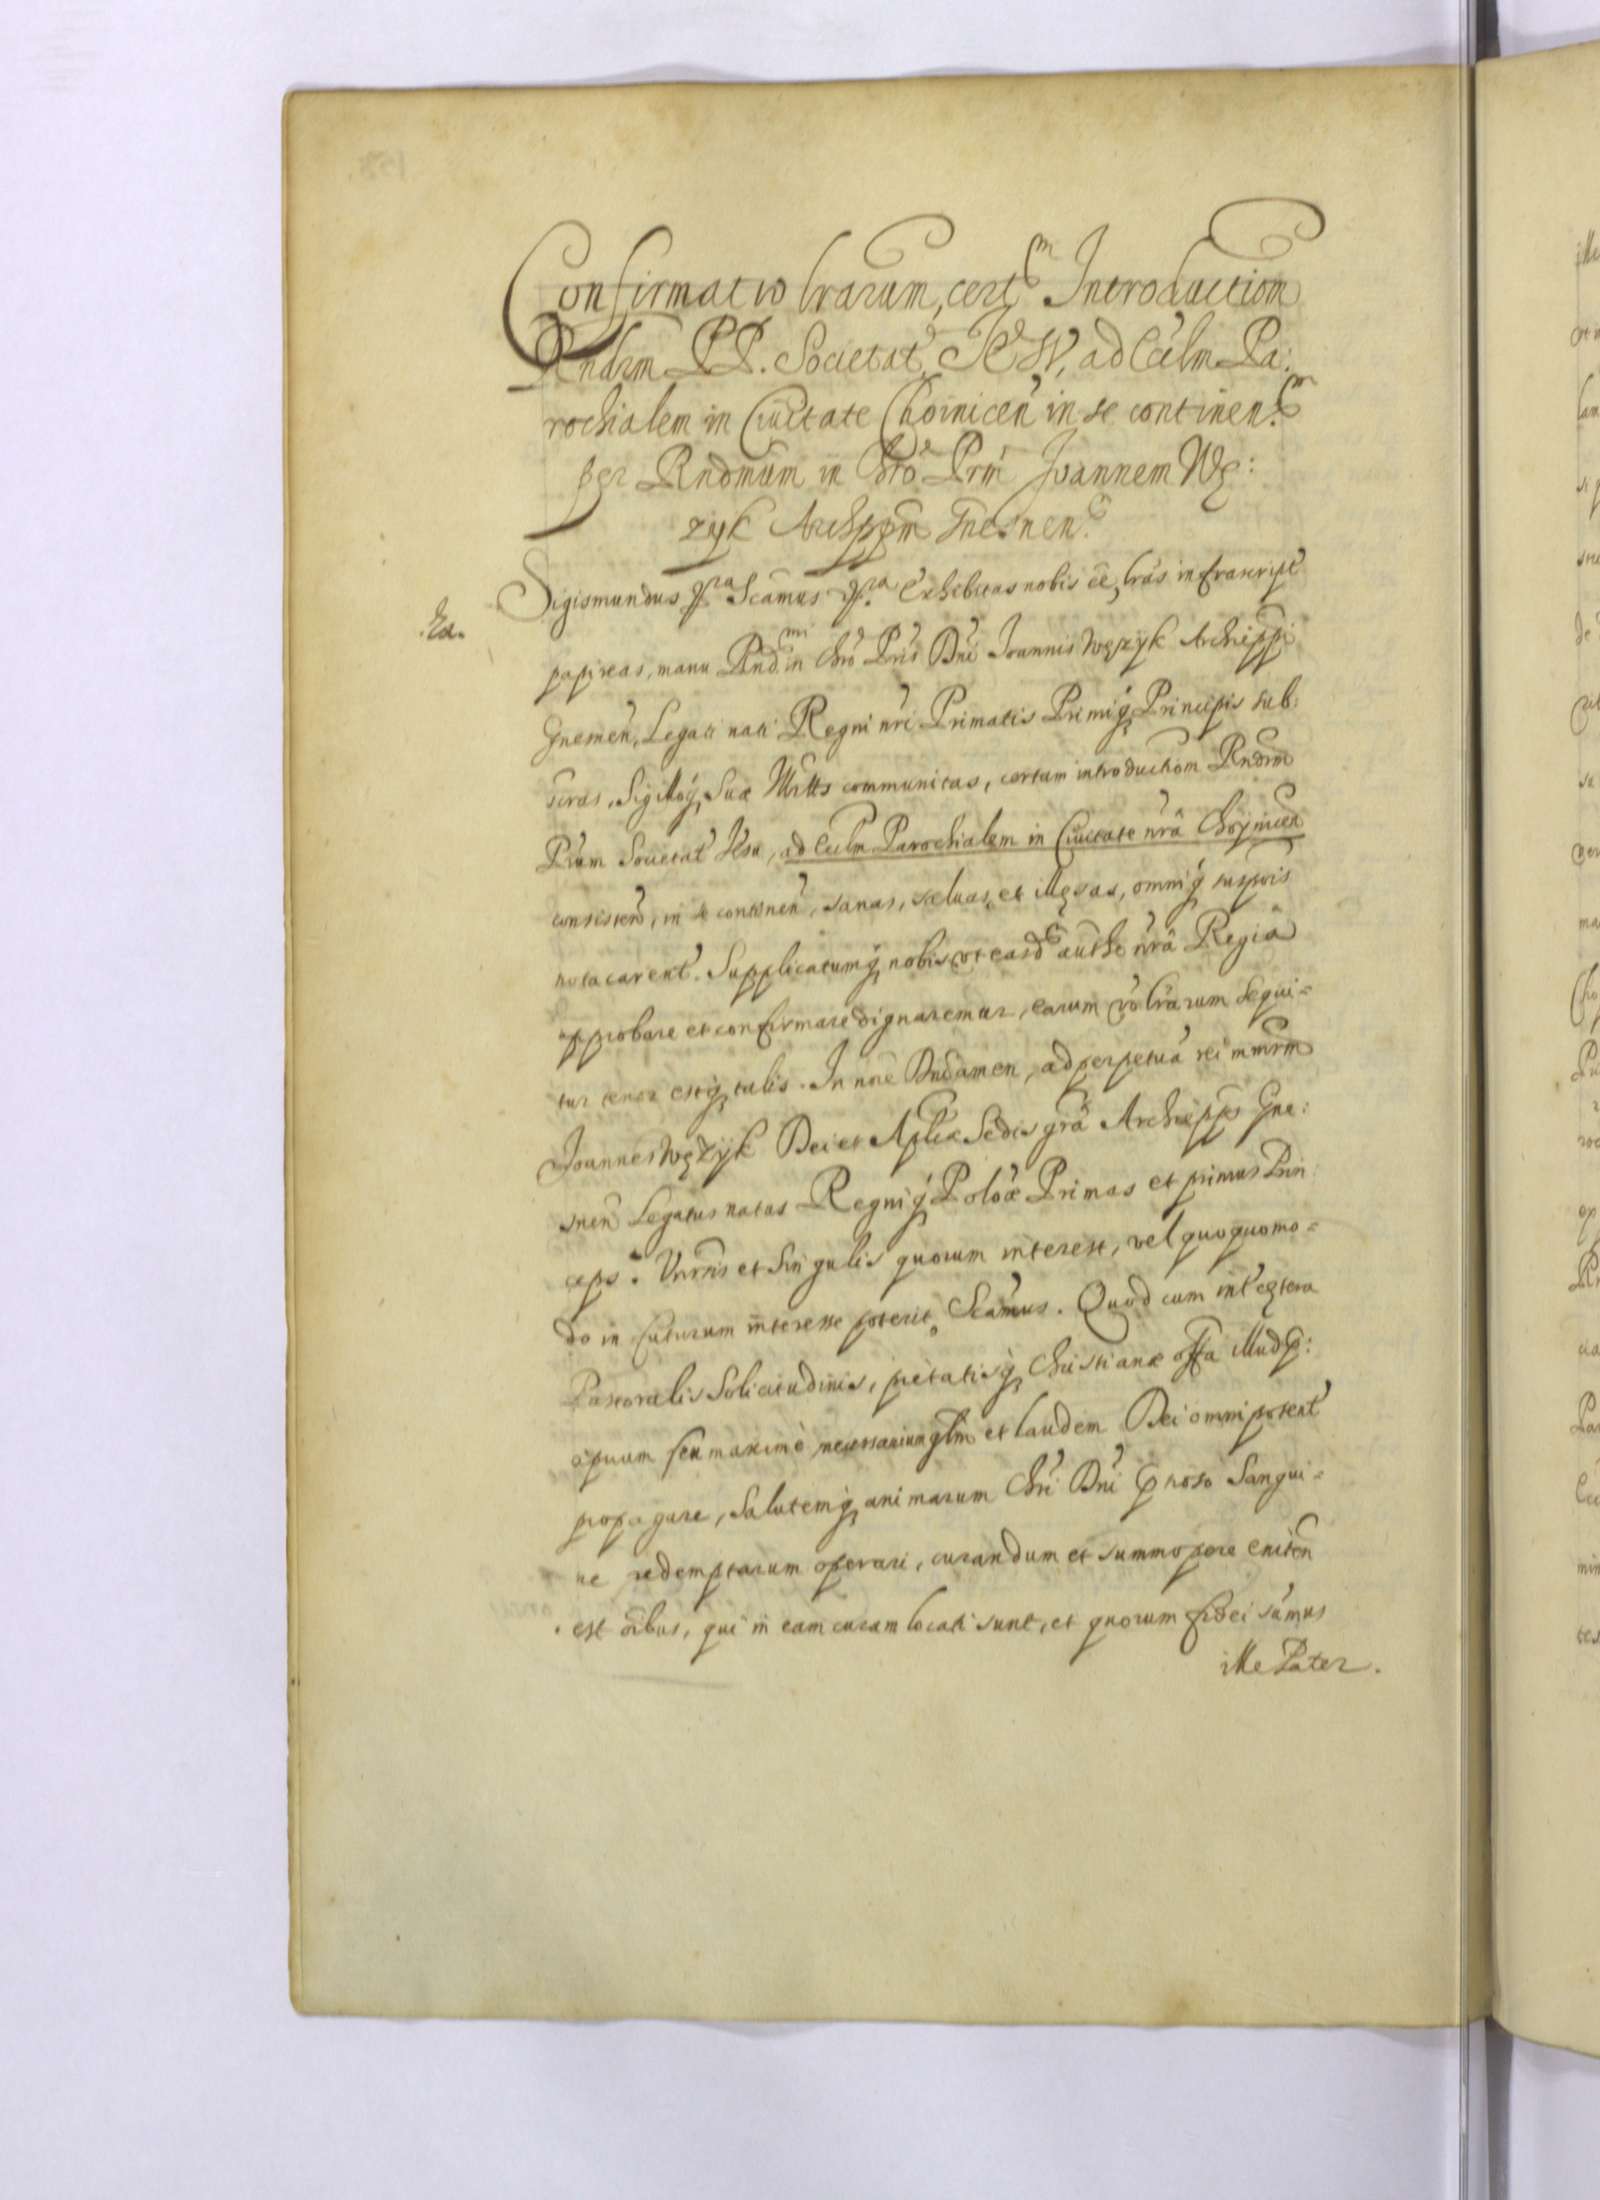 Confirmatio lrarum, cert Introduction
Rndrm PP. Societat JESV, ad Ecclm Pa:
rochialem in Civitate Choinicen in se continen.
per Rndmum in Chro Prm Joannem Wę:
zyk Archippm Gnesnen.
Sigismundus &ra Scamus &ra Exhibitas nobis ee, lras infrascript
.Ea.
papireas, manu Rnd mi in Chro Pris Dni Joannis Węzyk Archieppi
Gnesnen, Legati nati Regni nri Primatis Primiq Principis sub:
scras, Sigilloq Suæ Illtts communitas, certam introductiom Rndrm
Prum Societat Jesu, ad Ecclm Parochialem in Civitate nrâ Choynicen
consisten, in se continen, sanas, salvas, et illęsas, omniq suspois
nota carent. Supplicatumq nobis ut easd authe nrâ Regiâ
approbare et confirmare dignaremur, earum vo lrarum sequi=
tur tenor estq talis. In noïe Dni Amen, ad perpetuâ rei mmrm
Joannes Węzyk Dei et Aplicæ Sedis grâ Archieppus Gne:
snen Legatus natus Regniq Poloæ Primas et primus Prin
ceps. Vnirsis et Singulis quorum interest, vel quoquomo=
do in futurum interesse poterit Scamus. Quod cum int cętera
Pastoralis Solicitudinis, pietatisq Christianæ offa illud p:
cipuum seu maximè necessarium glm et laudem Dei omnipotent
propagare, Salutemq animarum Chri Dni p noso Sangui=
ne redemptarum operari, curandum et summopere eniten
est oibus, qui in eam curam locati sunt, et quorum fidei sumus
ille Pater.